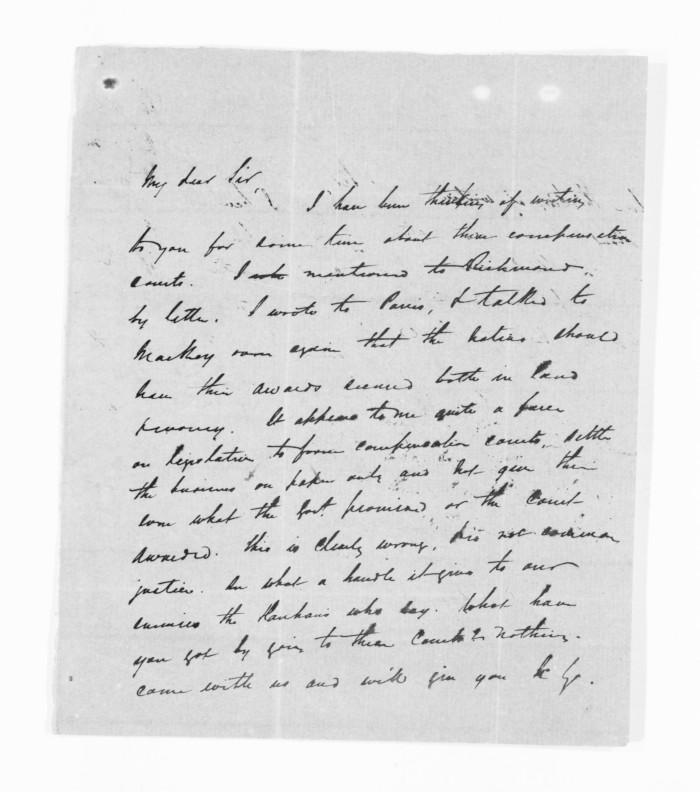 My dear Sir,
I have been thinking of writing
to you for some time about these compensation
courts. I mentioned to Richmond
by letter. I wrote to Parris, & talked to
Mackay once again that the natives should
have their awards secured both in land
& money. It appears to me quite a farce
on Legislative to form compensation courts, settle
the business on paper only and not give them
even what the Govt. promised or the Court
awarded. This is clearly wrong, & is not common
justice. An what a handle it gives to our
enemies the Hauhaus who say. What have
you got by going to these Courts? nothing.
come with us and will give you &c &c.